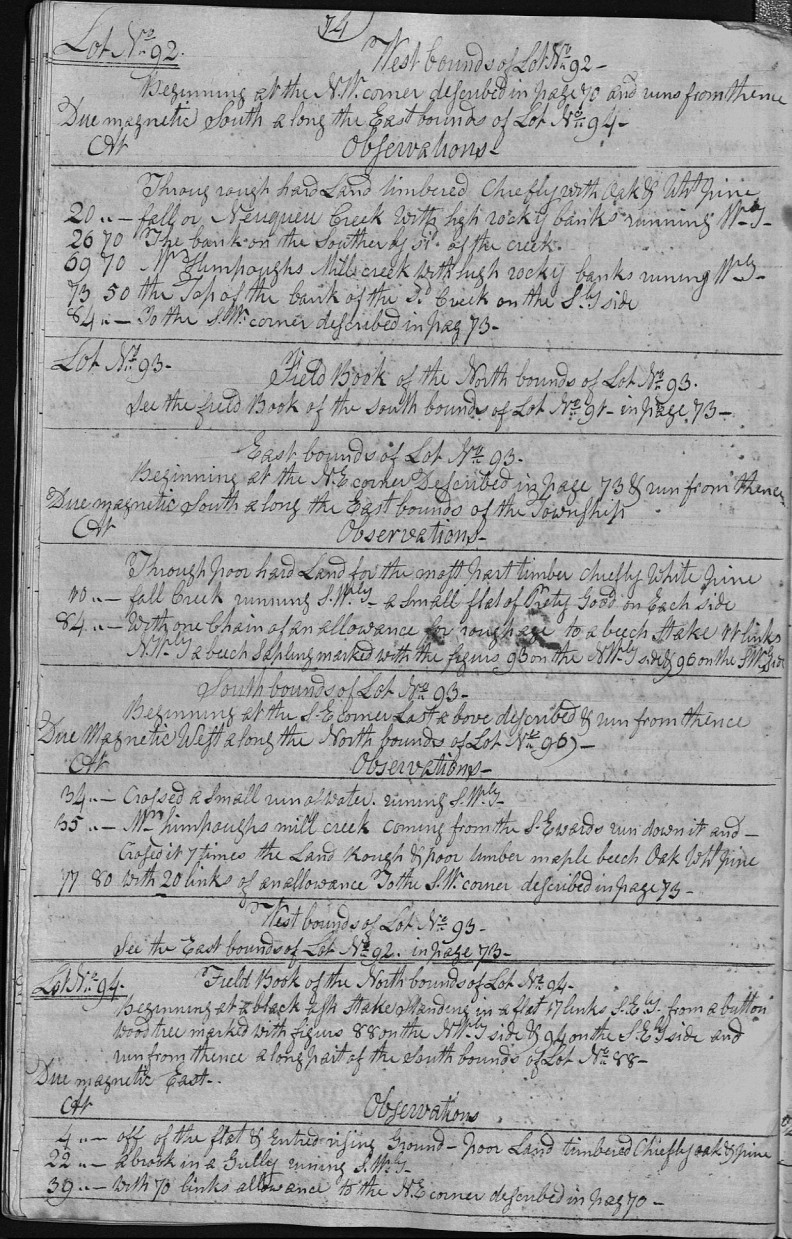 74
Lot No. 92.
West bounds of Lot No. 92 -
Beginning at the N.W. corner described in page 70 and runs from thence
Due magnetic South along the East bounds of Lot No. 94 -
Observations -
Throug rough hard Land timbered Chiefly with Oak & Wht pine
20 " - fall or Creek with high rocky banks running Wly -
26 70 The bank on the Southerly si. of the creek.
69 70 Mr Mill creek with high rocky banks runing Wly -
73 50 the Top of the bank of the sd Creek on the Sly side
84 " - To the S.W. corner described in pag 73 -
Lot No. 93 -
Field Book of the North bounds of Lot No. 93.
See the field Book of the South bounds of Lot No. 91 - in page 73 -
East bounds of Lot No. 93.
Beginning at the N.E corner Described in page 73 & run from thence
Due magnetic South along the East bounds of the Township
Observations -
Through poor hard Land for the most part timber chiefly White pine
" - fall Creek running S.Wly - a small flat of Prety Good on Each side
84 " - With one Chain of an allowance for to a beech Stake links
N.Wly a beech Sapling marked with the figurs 93 on the NWly side & 96 on the SWly side
South bounds of Lot No. 93 -
Beginning at the S.E corner Last above described & run from thence
Due Magnetic West along the North bounds of Lot No. 96 -
Observations -
34 " - Crossed a small run of water. runing S.Wly -
35 " - Mr mill creek coming from the S.Ewards run down it and -
Crossed it 7 times the Land Rough & poor timber maple beech Oak Wht pine
77 80 With 20 links of an allowance To the S.W. corner described in page 73 -
West bounds of Lot No. 93 -
See the East bounds of Lot No. 92. in page 73 -
Lot No. 94.
Field Book of the North bounds of Lot No. 94 -
Beginning at a black ash Stake Standing in a flat 17 links S.Ely. from a button
wood tree marked with figurs 88 on the NWly side & 94 on the S.Ely side and
run from thence along part of the South bounds of Lot No. 88 -
Due magnetic East -
Observations
4 " - off of the flat & Entred rising Ground - poor Land timbered Chiefly oak & pine
22 " - a brook in a Gully runing S.Wly -
39 " - With 70 links allowance to the N.E corner described in pag 70 -